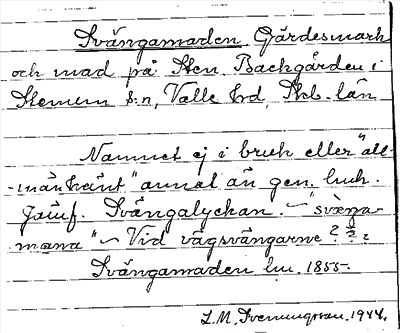 Svängamaden. Gärdesmark
och mad på Sten. Backgården i
Stenum s:n, Valle hd, Skb. län
Namnet ej i bruk eller "all-
-mänkänt" annat än gen.
Jämf. Svängalyckan. - "svänga-
" - Vid vägsvängarne? ? ?
Svängamaden lm. 1855.
L. M. Svenungsson. 1944.